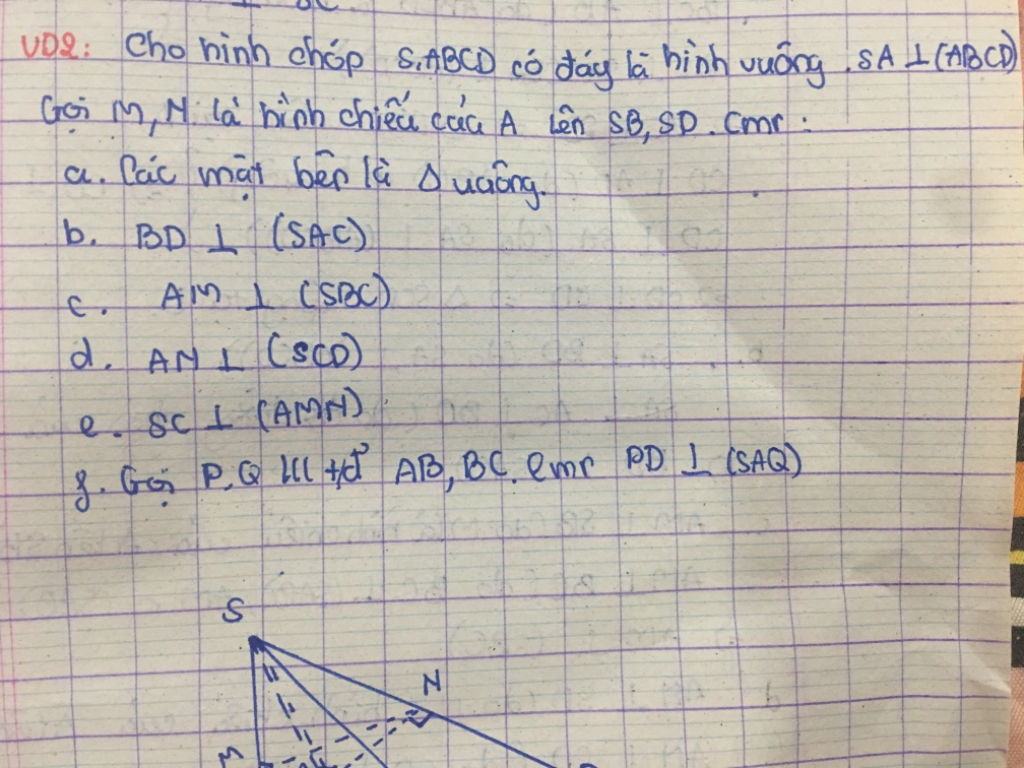 VD2: Cho hình chóp S.ABCD có đáy là hình vuông. SA ⊥ (ABCD)
Gọi M, N là hình chiếu của A lên SB, SD. Cmr:
a. Các mặt bên là Δ vuông.
b. BD ⊥ (SAC)
c. AM ⊥ (SBC)
d. AN ⊥ (SCD)
e. SC ⊥ (AMN)
g. Gọi P, Q lll t/đ AB, BC. Cmr PD ⊥ (SAQ)
S
N
M